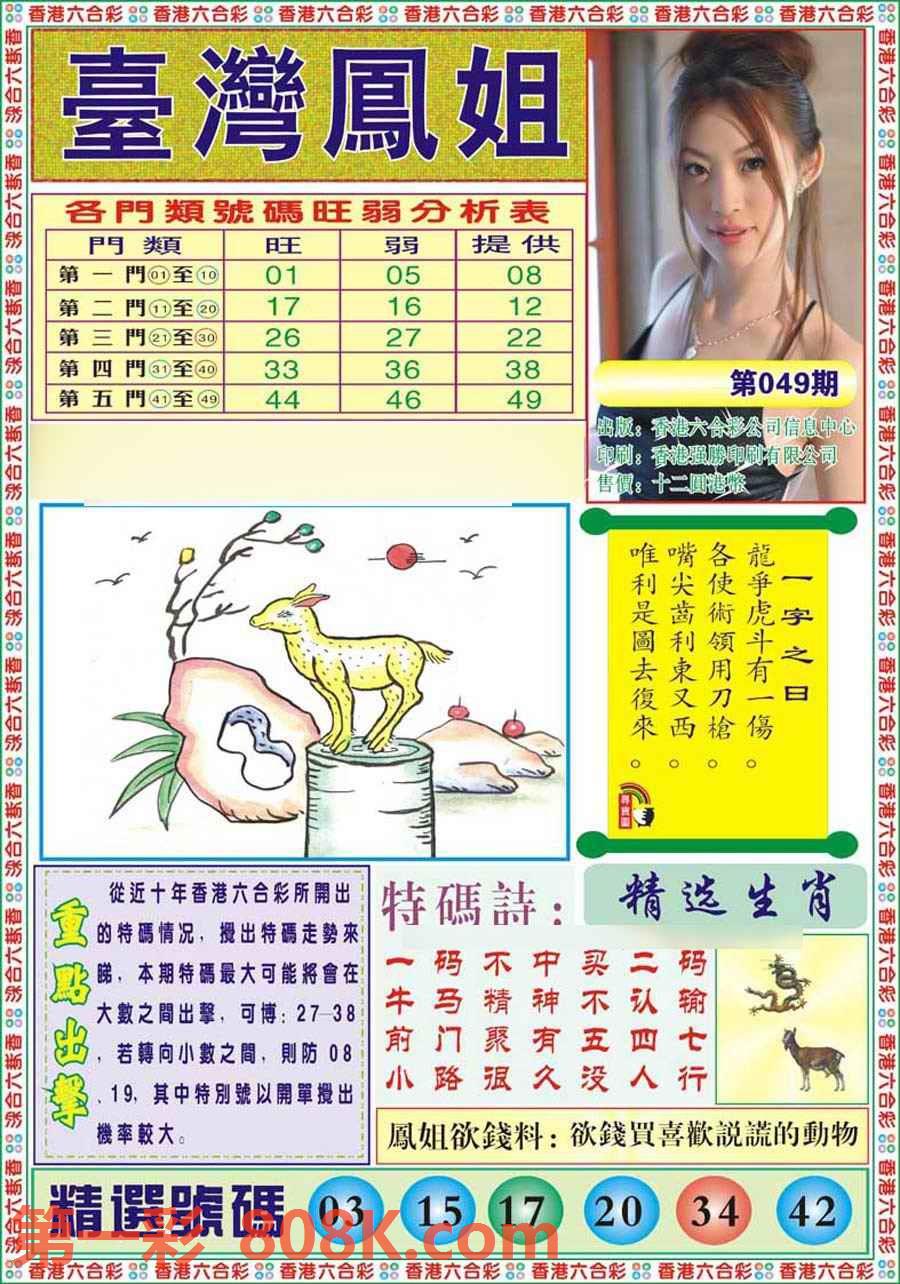 香港六合彩
臺灣鳳姐
各門類號碼旺弱分析表
門類 旺 弱 提供
第一門01至10 01 05 08
第二門11至20 17 16 12
第三門21至30 26 27 22
第四門31至40 33 36 38
第五門41至49 44 46 49
第049期
出版：香港六合彩公司信息中心
印刷：香港强勝印刷有限公司
售價：十二圓港幣
一字之曰
龍爭虎斗有一傷。
各使術領用刀槍。
嘴尖齒利東又西。
唯利是圖去復來。
尋寶圖
重點出擊
從近十年香港六合彩所開出
的特碼情况，攪出特碼走勢來
睇，本期特碼最大可能將會在
大數之間出擊，可博：27—38
，若轉向小數之間，則防 08
、19，其中特別號以開單攪出
機率較大。
特碼詩：
一码不中买二码
牛马精神不认输
前门聚有五四七
小路很久没人行
精选生肖
鳳姐欲錢料：欲錢買喜歡説謊的動物
精選號碼 03 15 17 20 34 42
第一彩 808K.com